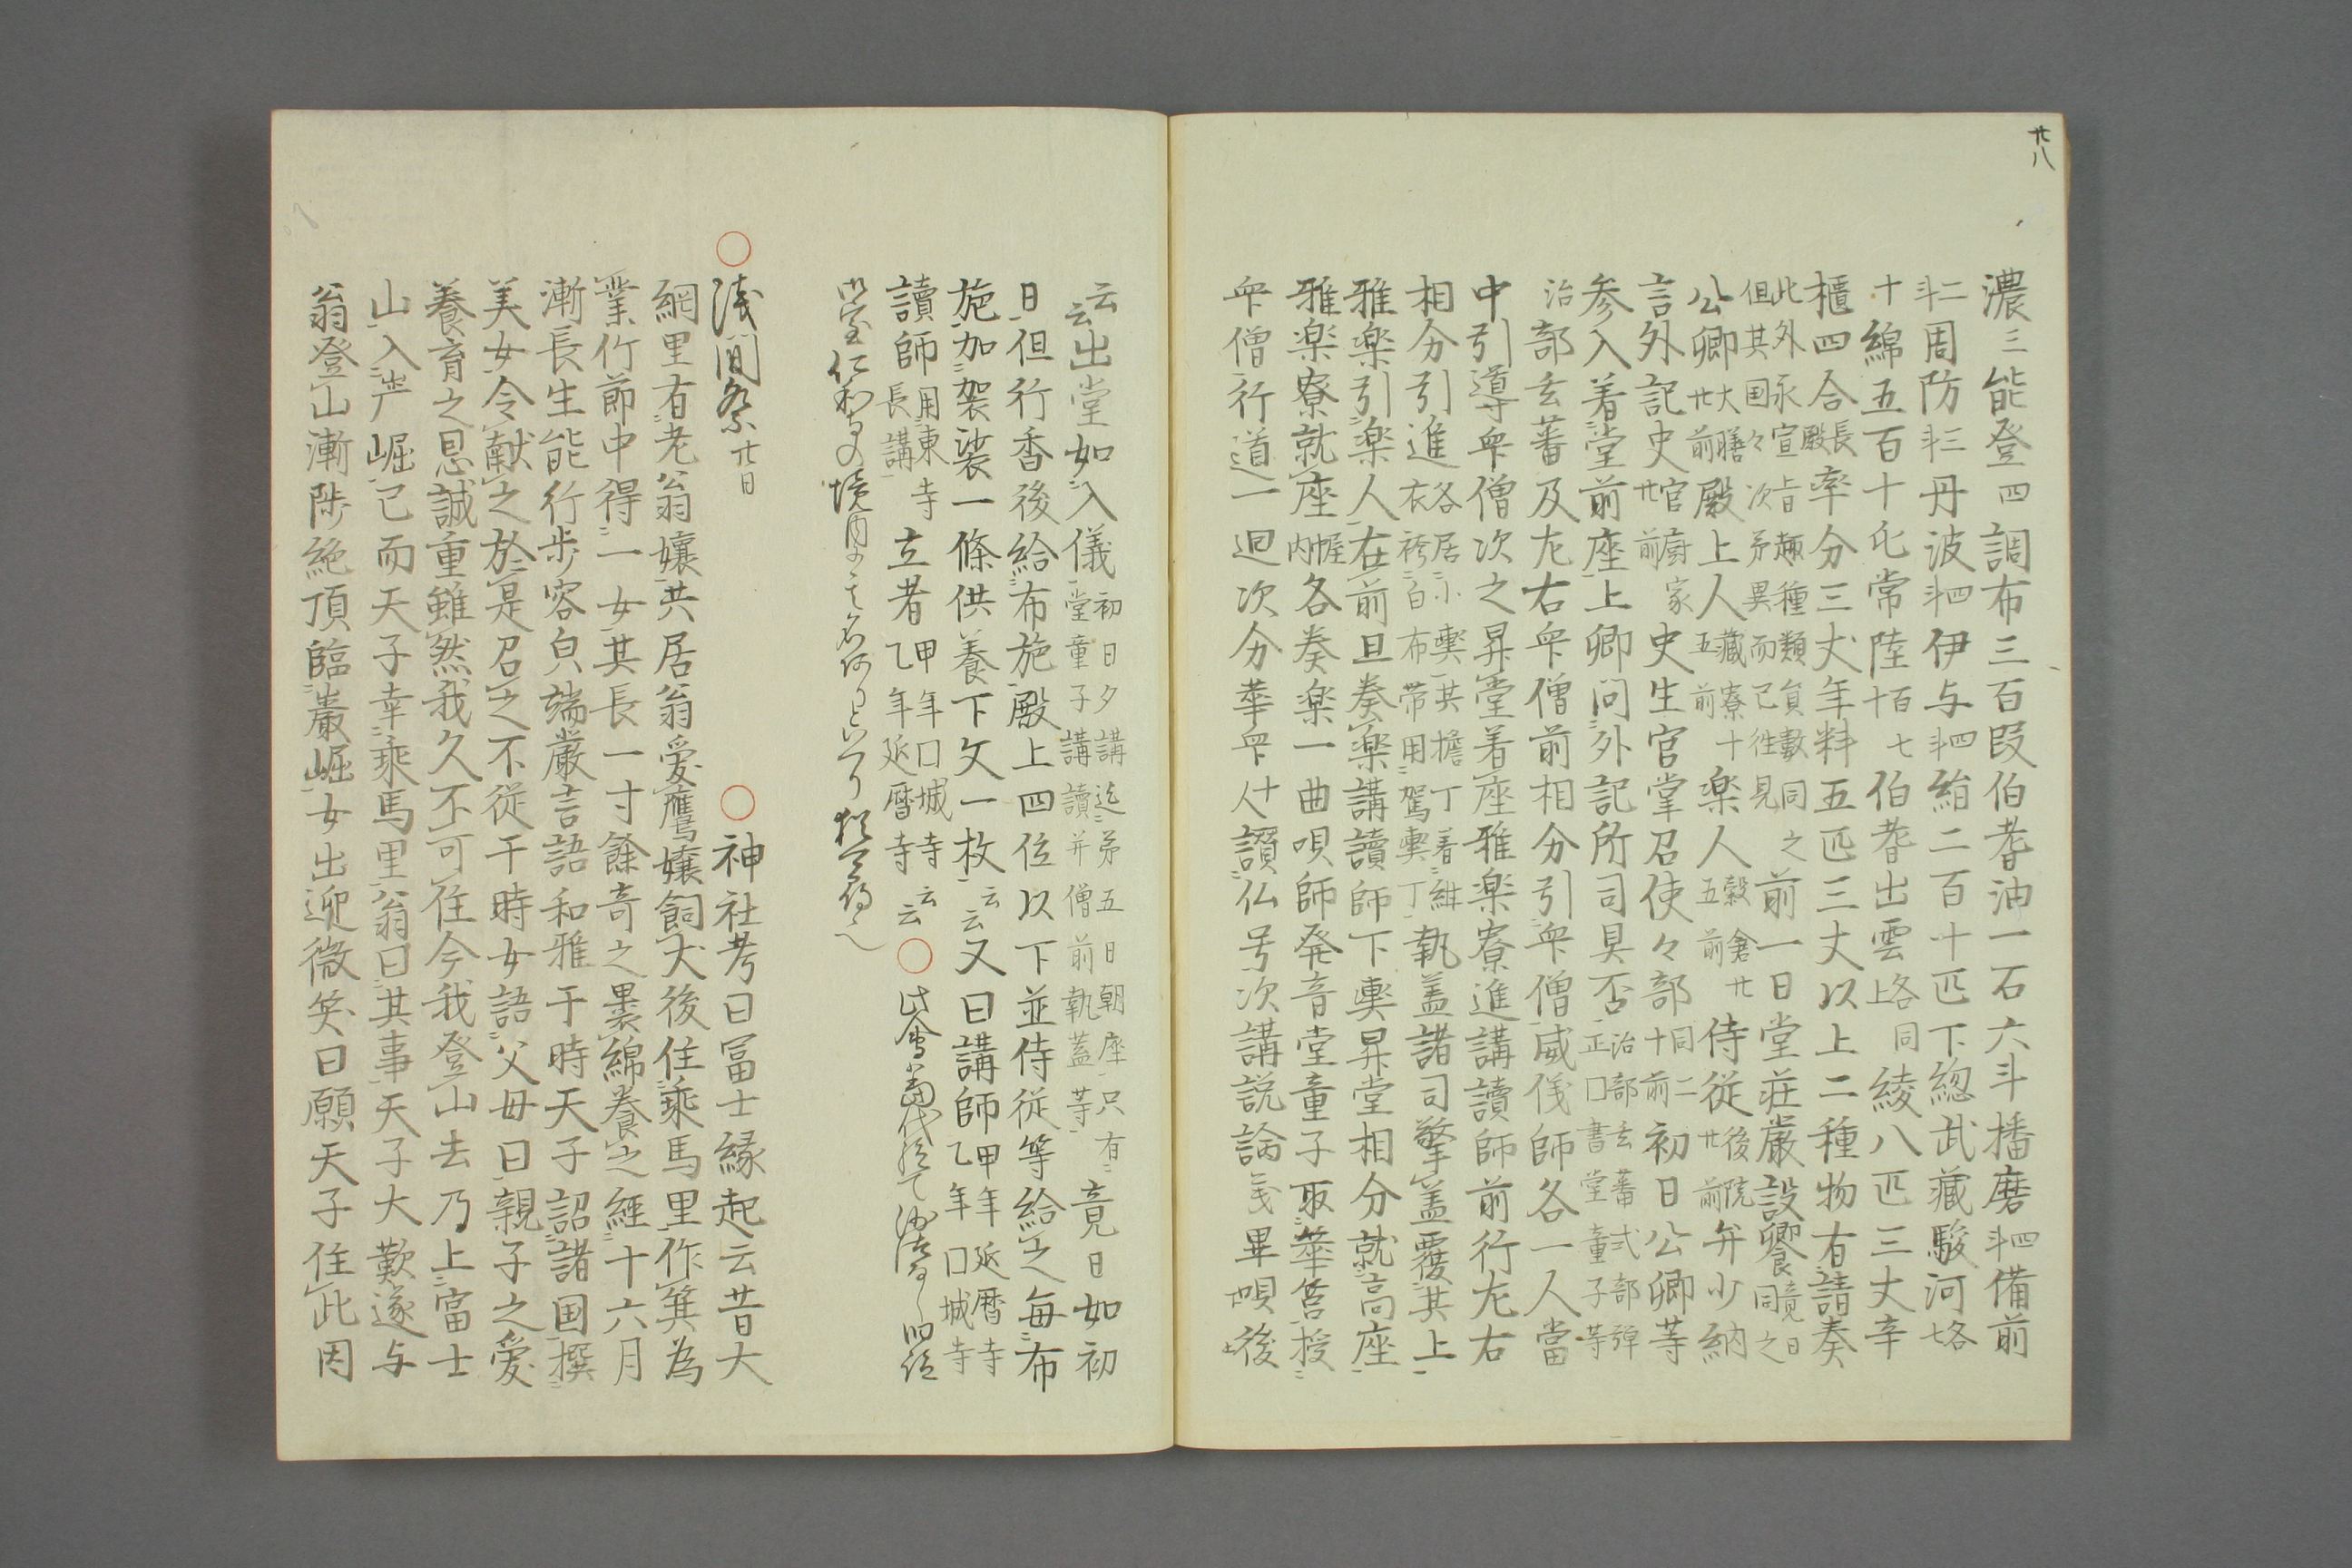 廿八
濃三能登四調布三百段伯耆油一石六斗播磨四斗備前
二斗周防三斗丹波四斗伊与四斗絁二百十匹下総武蔵駿河各七
十綿五百十屯常陸百七十伯耆出雲各同上綾八匹三丈辛
櫃四合長殿率分三丈年料五匹三丈以上二種物有請奏
此外永宣旨趣種類員数同之但其国々次第異而已往見前一日堂荘厳設饗竟日同之
公卿大膳廿前殿上人蔵寮十五前楽人穀倉廿五前侍従後院廿前弁少納
言外記史官厨家廿前史生官掌召使々部同二二十前初日公卿等
参入着堂前座上卿問外記所司具否治部玄蕃式部弾正口書堂童子等
治部玄蕃及左右衆僧前相分引衆僧威儀師各一人當
中引導衆僧次之昇堂着座雅楽寮進講讀師前行左右
相分引進各居小輿共擔丁着紺衣袴白布帯用駕輿丁執蓋諸司擎蓋覆其上
雅楽引楽人在前且奏楽講讀師下輿昇堂相分就高座
雅楽寮就座幄内各奏楽一曲唄師発音堂童子取華筥授
衆僧行道一廻次分華衆十人讃仏号次講説論義畢唄後
云云出堂如入儀初日夕講迄第五日朝座只有堂童子講讀并僧前執蓋等竟日如初
日但行香後給布施殿上四位以下並侍従等給之毎布
施加袈裟一條供養下文一枚云云又曰講師甲年延暦寺乙年口城寺
讀師用東寺長講立者甲年口城寺乙年延暦寺云云○此會當代絶て
御室仁和寺の境内
○浅間祭廿日
○神社考曰冨士縁起云昔大
綱里有老翁嬢共居翁愛鷹嬢飼犬後住乗馬里作箕為
業竹節中得一女其長一寸餘奇之裹綿養之經十六月
漸長生能行歩容皃端嚴言語和雅于時天子詔諸国撰
美女令献之於是召之不従干時女語父母曰親子之愛
養育之恩誠重雖然我久不可住今我登山去乃上富士
山入岩崛已而天子幸乗馬里翁曰其事天子大歎遂与
翁登山漸陟絶頂臨巌崛女出迎微笑曰願天子住此因